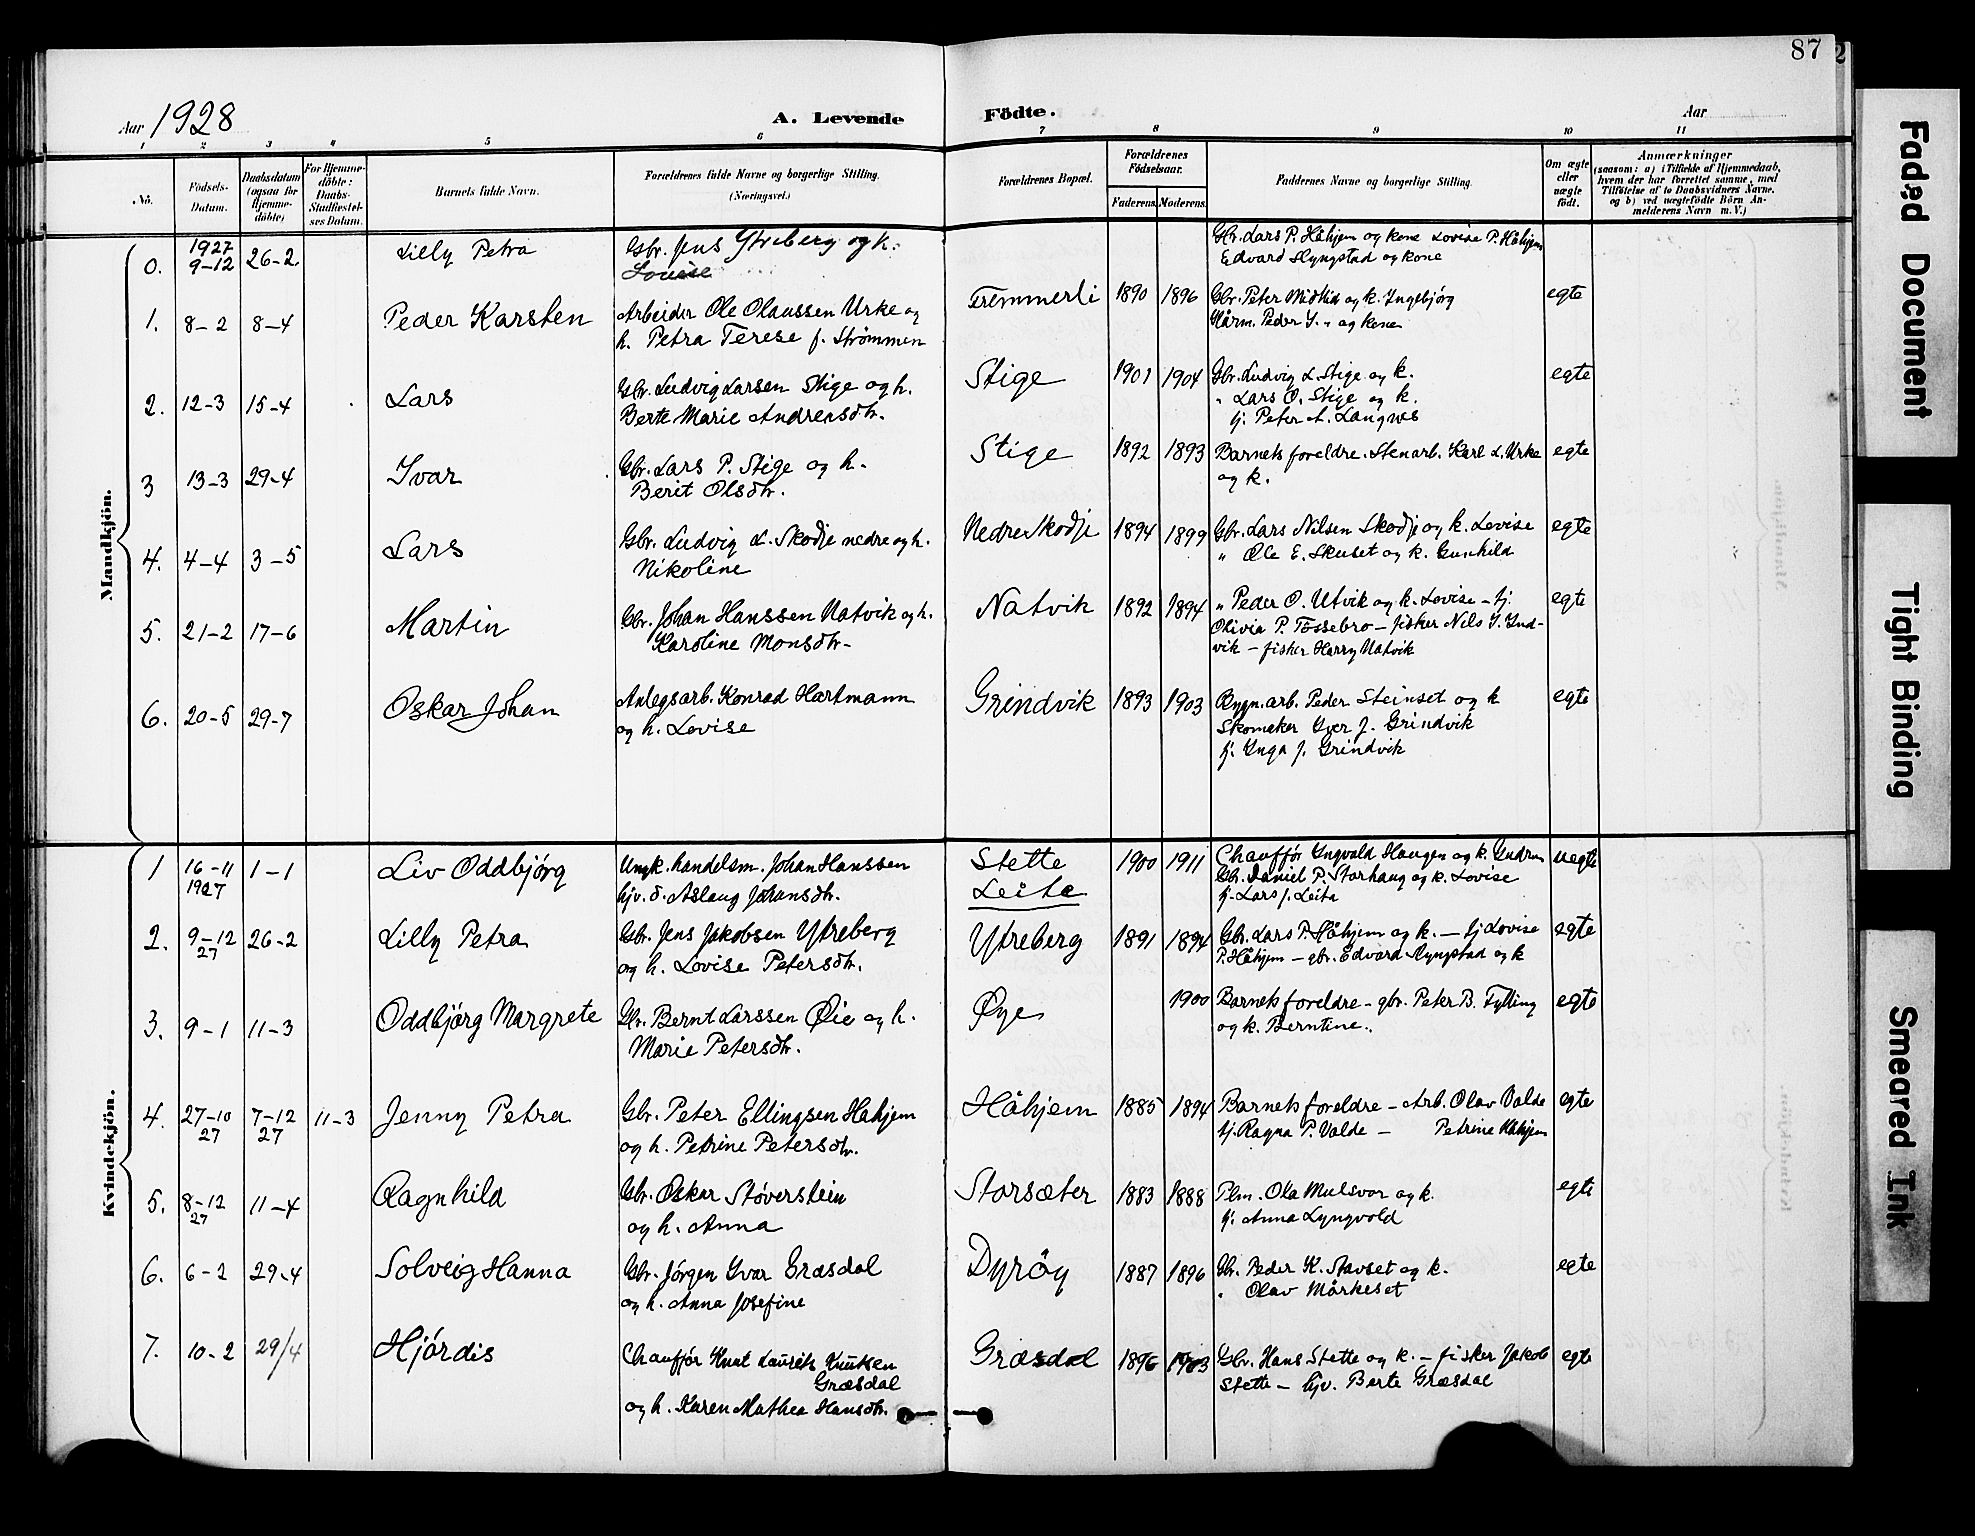 87
2
Aar 1928
A. Levende
Födte.
Aar
1 2 3 4 5 6 7 8 9 10 11
No.
Födsels-Datum.
Daabsdatum (ogsaa for Hjemme-döbte)
For Hjemme-döbte: Daabs-Stadfæstel-ses Datum.
Barnets fulde Navn.
Forældrenes fulde Navne og borgerlige Stilling. (Næringsvei.)
Forældrenes Bopæl.
Forældrenes Födselsaar.
Faderens. Moderens.
Faddernes Navne og borgerlige Stilling.
Om ægte eller uægte födt.
Anmærkninger
(saasom: a) i Tilfælde af Hjemmedaab,
hvem der har forrettet samme, med
Tilföielse af to Daabsvidners Navne,
og b) ved uægtefödte Börn An-
melderens Navn m. V.)
Mandkjön.
0. 1927 9-12 26-2 Lilly Petra Gbr. Jens Ytreberg og h.
Lovise
Gbr. Lars P. Håhjem og kone Lovise P. Håhjem
Edvard Slyngstad og kone
1. 8-2 8-4 Peder Karsten Arbeider Ole Olaussen Urke og
h. Petra Terese f. Strömmen
Fremmerli 1890 1896 Gbr. Peter Midtlid og k. Ingebjørg
Hårm. Peder Y. " og kone
egte
2. 12-3 15-4 Lars Gbr. Ludvig Larsen Stige og h.
Berte Marie Andreasdtr.
Stige 1901 1904 Gbr. Ludvig L. Stige og k.
" Lars O. Stige og k.
tj. Peter A. Langnes
egte
3 13-3 29-4 Ivar Gbr. Lars P. Stige og h.
Berit Olsdtr.
Stige 1892 1893 Barnets foreldre. Stenarb. Karl L. Urke
og k.
egte
4. 4-4 3-5 Lars Gbr. Ludvig L. Skodje nedre og h.
Nikoline
Nedre Skodje 1894 1899 Gbr. Lars Nilsen Skodje og k. Lovise
" Ole E. Skuset og k. Gunhild
egte
5. 21-2 17-6 Martin Gbr. Johan Hanssen Natvik og h.
Karoline Monsdtr.
Natvik 1892 1894 " Peder O. Utvik og k. Lovise - tj.
Olivia P. Tossebro - fisker Nils J. Ind-
vik - fisker Harry Natvik
egte
6. 20-5 29-7 Oskar Johan Anlegsarb. Konrad Hartmann
og h. Lovise
Grindvik 1893 1903 Bygn.arb. Peder Steinset og k
Skomaker Iver J. Grindvik
tj. Inga J. Grindvik
egte
Kvindekjön.
1 16-11 1927 1-1 Liv Oddbjörg Ungk. handelsm. Johan Hanssen
hjv. d. Aslaug Johansdtr.
Stette
Leite
1900 1911 Chauffør Ingvald Haugen og k. Gudrun
Gbr. Daniel P. Storhaug og k. Lovise
tj. Lars J. Leita
uegte
2. 9-12 27 26-2 Lilly Petra Gbr. Jens Jakobsen Ytreberg
og h. Lovise Petersdtr.
Ytreberg 1891 1894 Gbr. Lars P. Håhjem og k. - tj Lovise
P. Håhjem - gbr. Edvard Slyngstad og k
egte
3. 9-1 11-3 Oddbjørg Margrete Gbr. Bernt Larssen Øie og h.
Marie Petersdtr.
Øye 1900 Barnets foreldre - gbr. Peter B. Fylling
og k. Berntine.
egte
4. 27-10 27 7-12 27 11-3 Jenny Petra Gbr. Peter Ellingsen Hahjem
og h. Petrine Petersdtr.
Håhjem 1885 1894 Barnets foreldre - Arb. Olav Valde
tj. Ragna P. Valde - Petrine Håhjem
egte
5. 8-12 27 11-4 Ragnhild Gbr. Oskar Støverstein
og h. Anna
Storsæter 1883 1888 Plm. Ola Mulsvor og k.
tj. Anna Lyngvold
egte
6. 6-2 29-4 Solveig Hanna Gbr. Jørgen Ivar Græsdal
og h. Anna Josefine
Dyröy 1887 1896 Gbr. Peder K. Stavset og k.
" Olav Mörkeset
egte
7. 10-2 29/4 Hjördis Chauffør Knut Laurits Knutsen
Græsdal
og h. Karen Mathea Hansdtr.
Græsdal 1896 1903 Gbr. Hans Stette og k. - fisker Jakob
Stette - hjv. Berte Græsdal
egte
Faded Document
Tight Binding
Smeared Ink